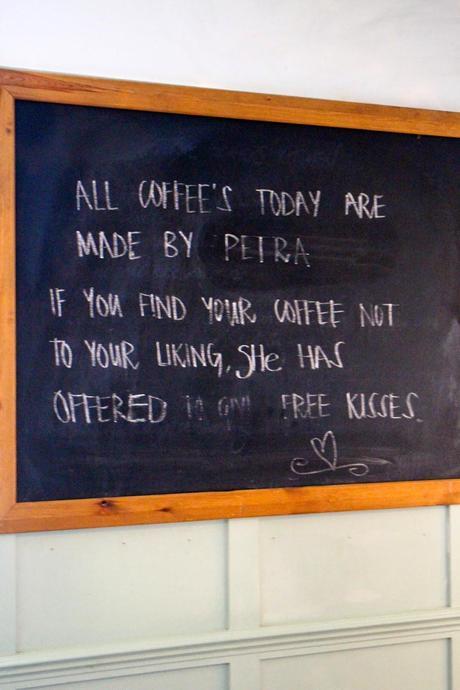 ALL COFFEE'S TODAY ARE
MADE BY PETRA
IF YOU FIND YOUR COFFEE NOT
TO YOUR LIKING, SHe HAS
OFFERED TO GIVE FREE KISSES.